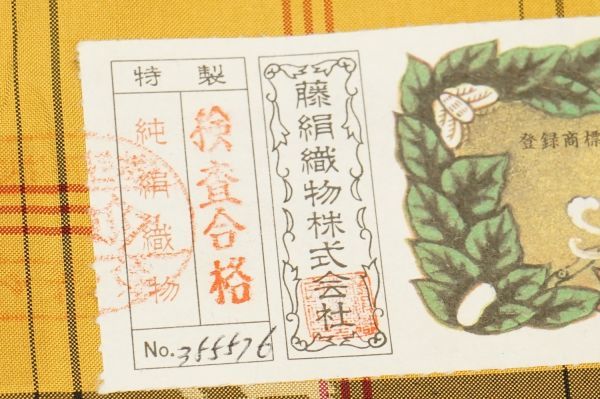 特製
検査合格
純絹織物
No. 355576
藤絹織物株式会社
登録商標